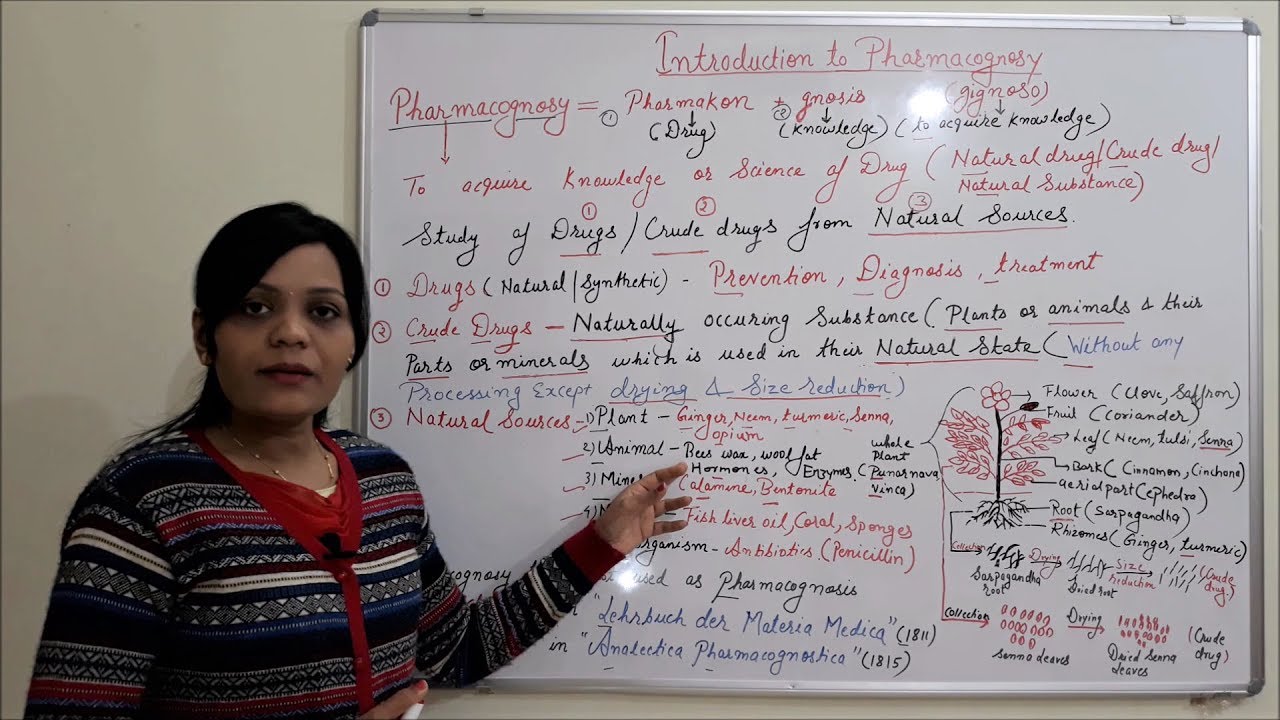 Introduction to Pharmacognosy
Pharmacognosy = ① Pharmakon + ② gnosis (gignoso)
(Drug) (Knowledge) (to acquire knowledge)
To acquire Knowledge or Science of Drug (Natural drug/Crude drug/
Natural Substance)
① ② ③
Study of Drugs / Crude drugs from Natural Sources.
① Drugs (Natural/Synthetic) - Prevention, Diagnosis, treatment
② Crude Drugs - Naturally occuring Substance (Plants or animals & their
Parts or minerals which is used in their Natural State (Without any
Processing Except drying & Size reduction)
③ Natural Sources - 1) Plant - Ginger, Neem, turmeric, Senna,
opium
2) Animal - Bees wax, wool fat
Hormones, Enzymes,
3) Mine
Calamine, Bentonite
4)
Fish liver oil, Coral, Sponges
organism - Antibiotics (Penicillin)
used as Pharmacognosis
"Lehrbuch der Materia Medica" (1811)
in "Analectica Pharmacognostica" (1815)
whole
plant
(Punarnava,
Vinca)
Flower (Clove, Saffron)
Fruit (coriander)
Leaf (Neem, tulsi, Senna)
Bark (Cinnamon, Cinchona)
aerial part (ephedra)
Root (Sarpagandha)
Rhizomes (Ginger, turmeric)
Collection Drying Size reduction (Crude drug)
Sarpagandha root
Dried root
Collection Drying (Crude drug)
Senna leaves
Dried Senna leaves